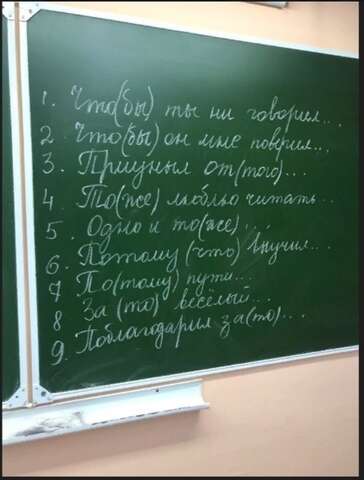 1. Что(бы) ты ни говорил...
2. Что(бы) он мне поверил...
3. Приуныл от(того)...
4 То(же) люблю читать...
5. Одно и то(же)...
6. Потому (что) выучил...
7 По(тому) пути...
8 За (то) весёлый...
9. Поблагодарил за(то)...